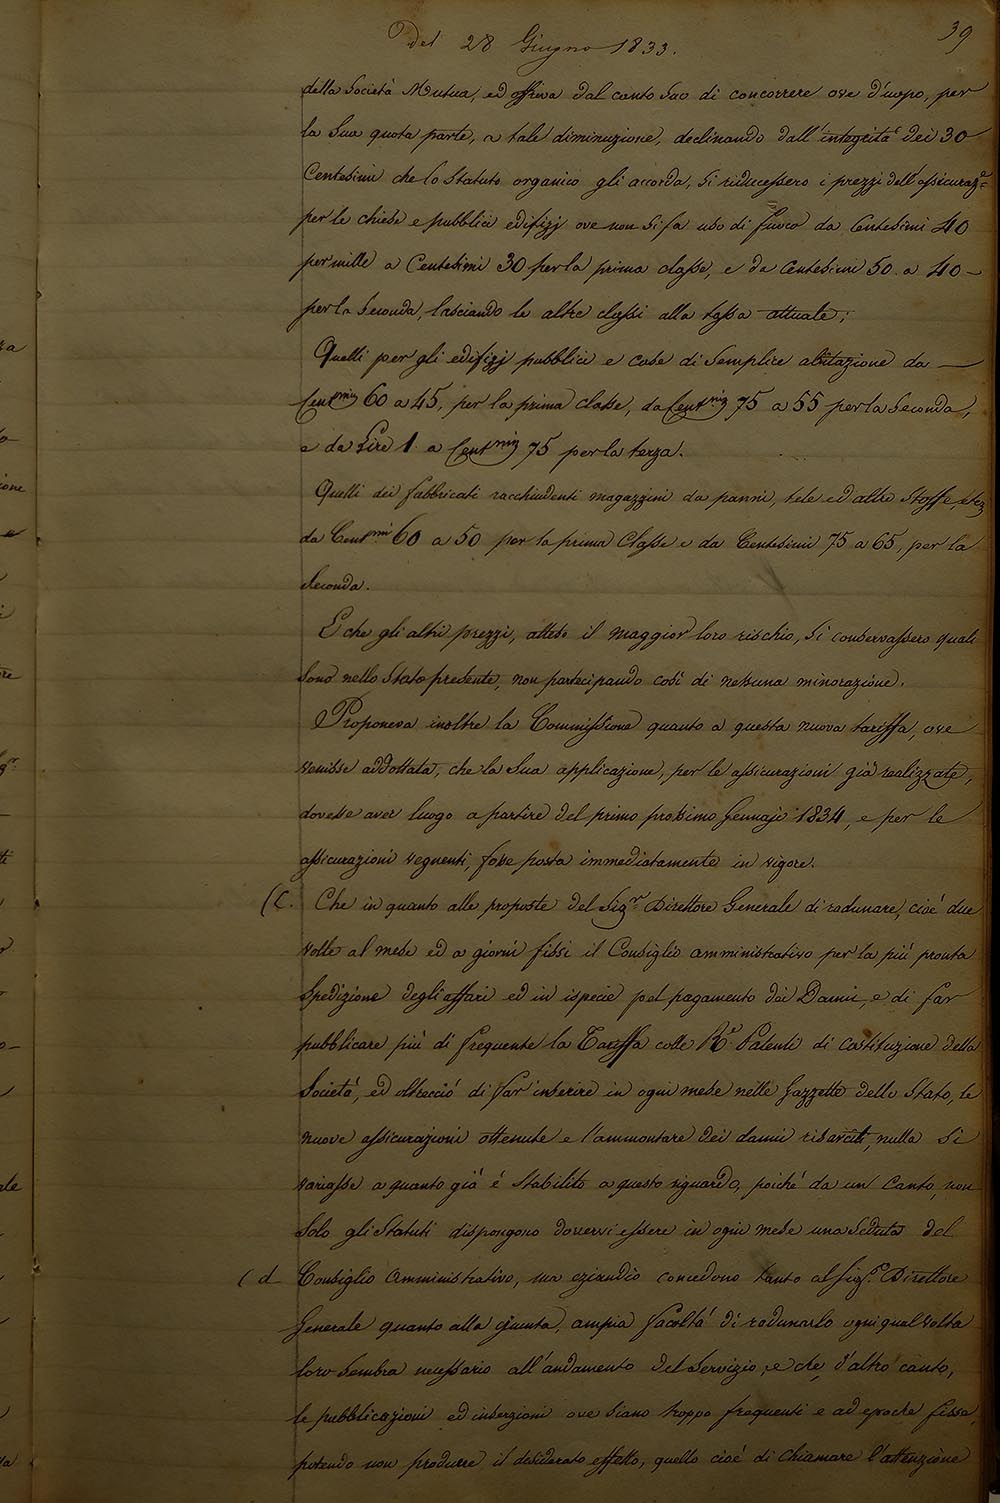 Del 28 Giugno 1833.
39
della Società Mutua, ed offriva dal canto suo di concorrere ove d'uopo, per
la Sua quota parte, a tale diminuzione, declinando dall'integrità dei 30
Centesimi che lo Statuto organico gli accorda, Si riducessero i prezzi dell'assicuraz.e
per le chiese e pubblici edifizj ove non Si fa uso di fuoco da Centesimi 40
per mille a Centesimi 30 per la prima classe, e da Centesimi 50 a 40 -
per la Seconda, lasciando le altre classi alla tassa attuale;
Quelli per gli edifizj pubblici e case di Semplice abitazione da —
Centmi 60 a 45, per la prima classe, da Centmi 75 a 55 per la Seconda,
e da Lire 1. a Centmi 75 per la terza.
Quelli dei fabbricati racchiudenti magazzini da panni, tele ed altre Stoffe, etc
da Centmi 60 a 50 per la prima Classe e da Centesimi 75 a 65, per la
Seconda.
E che gli altri prezzi, atteso il maggior loro rischio, Si conservassero quali
Sono nello Stato presente, non partecipando così di nessuna minorazione.
Proponeva inoltre la Commissione quanto a questa nuova tariffa, ove
venisse addottata, che la Sua applicazione, per le assicurazioni già realizzate,
dovesse aver luogo a partire del primo prossimo Gennajo 1834, e per le
assicurazioni seguenti, fosse posta immediatamente in vigore.
(C. Che in quanto alle proposte del Sigr. Direttore Generale di radunare, cioè due
volte al mese ed a giorni fissi il Consiglio amministrativo per la più pronta
Spedizione degli affari ed in ispecie pel pagamento dei Danni, e di far
pubblicare più di frequente la Tariffa colle Re. Patenti di costituzione della
Società, ed oltrecció di far inserire in ogni mese nelle Gazzette dello Stato, le
nuove assicurazioni ottenute e l'ammontare dei danni risarciti, nulla Si
variasse a quanto già è Stabilito a questo riguardo, poiché da un Canto, non
Solo gli Statuti dispongono dovervi essere in ogni mese una Seduta del
(d Consiglio Amministrativo, ma eziandio concedono tanto al Sigr. Direttore
Generale quanto alla Giunta, ampia facoltà di radunarlo ogni qual volta
loro Sembra necessario all'andamento del Servizio, e che, d'altro canto,
le pubblicazioni ed inserzioni ove Siano troppo frequenti e ad epoche fisse,
potendo non produrre il desiderato effetto, quello cioè di chiamare l'attenzione